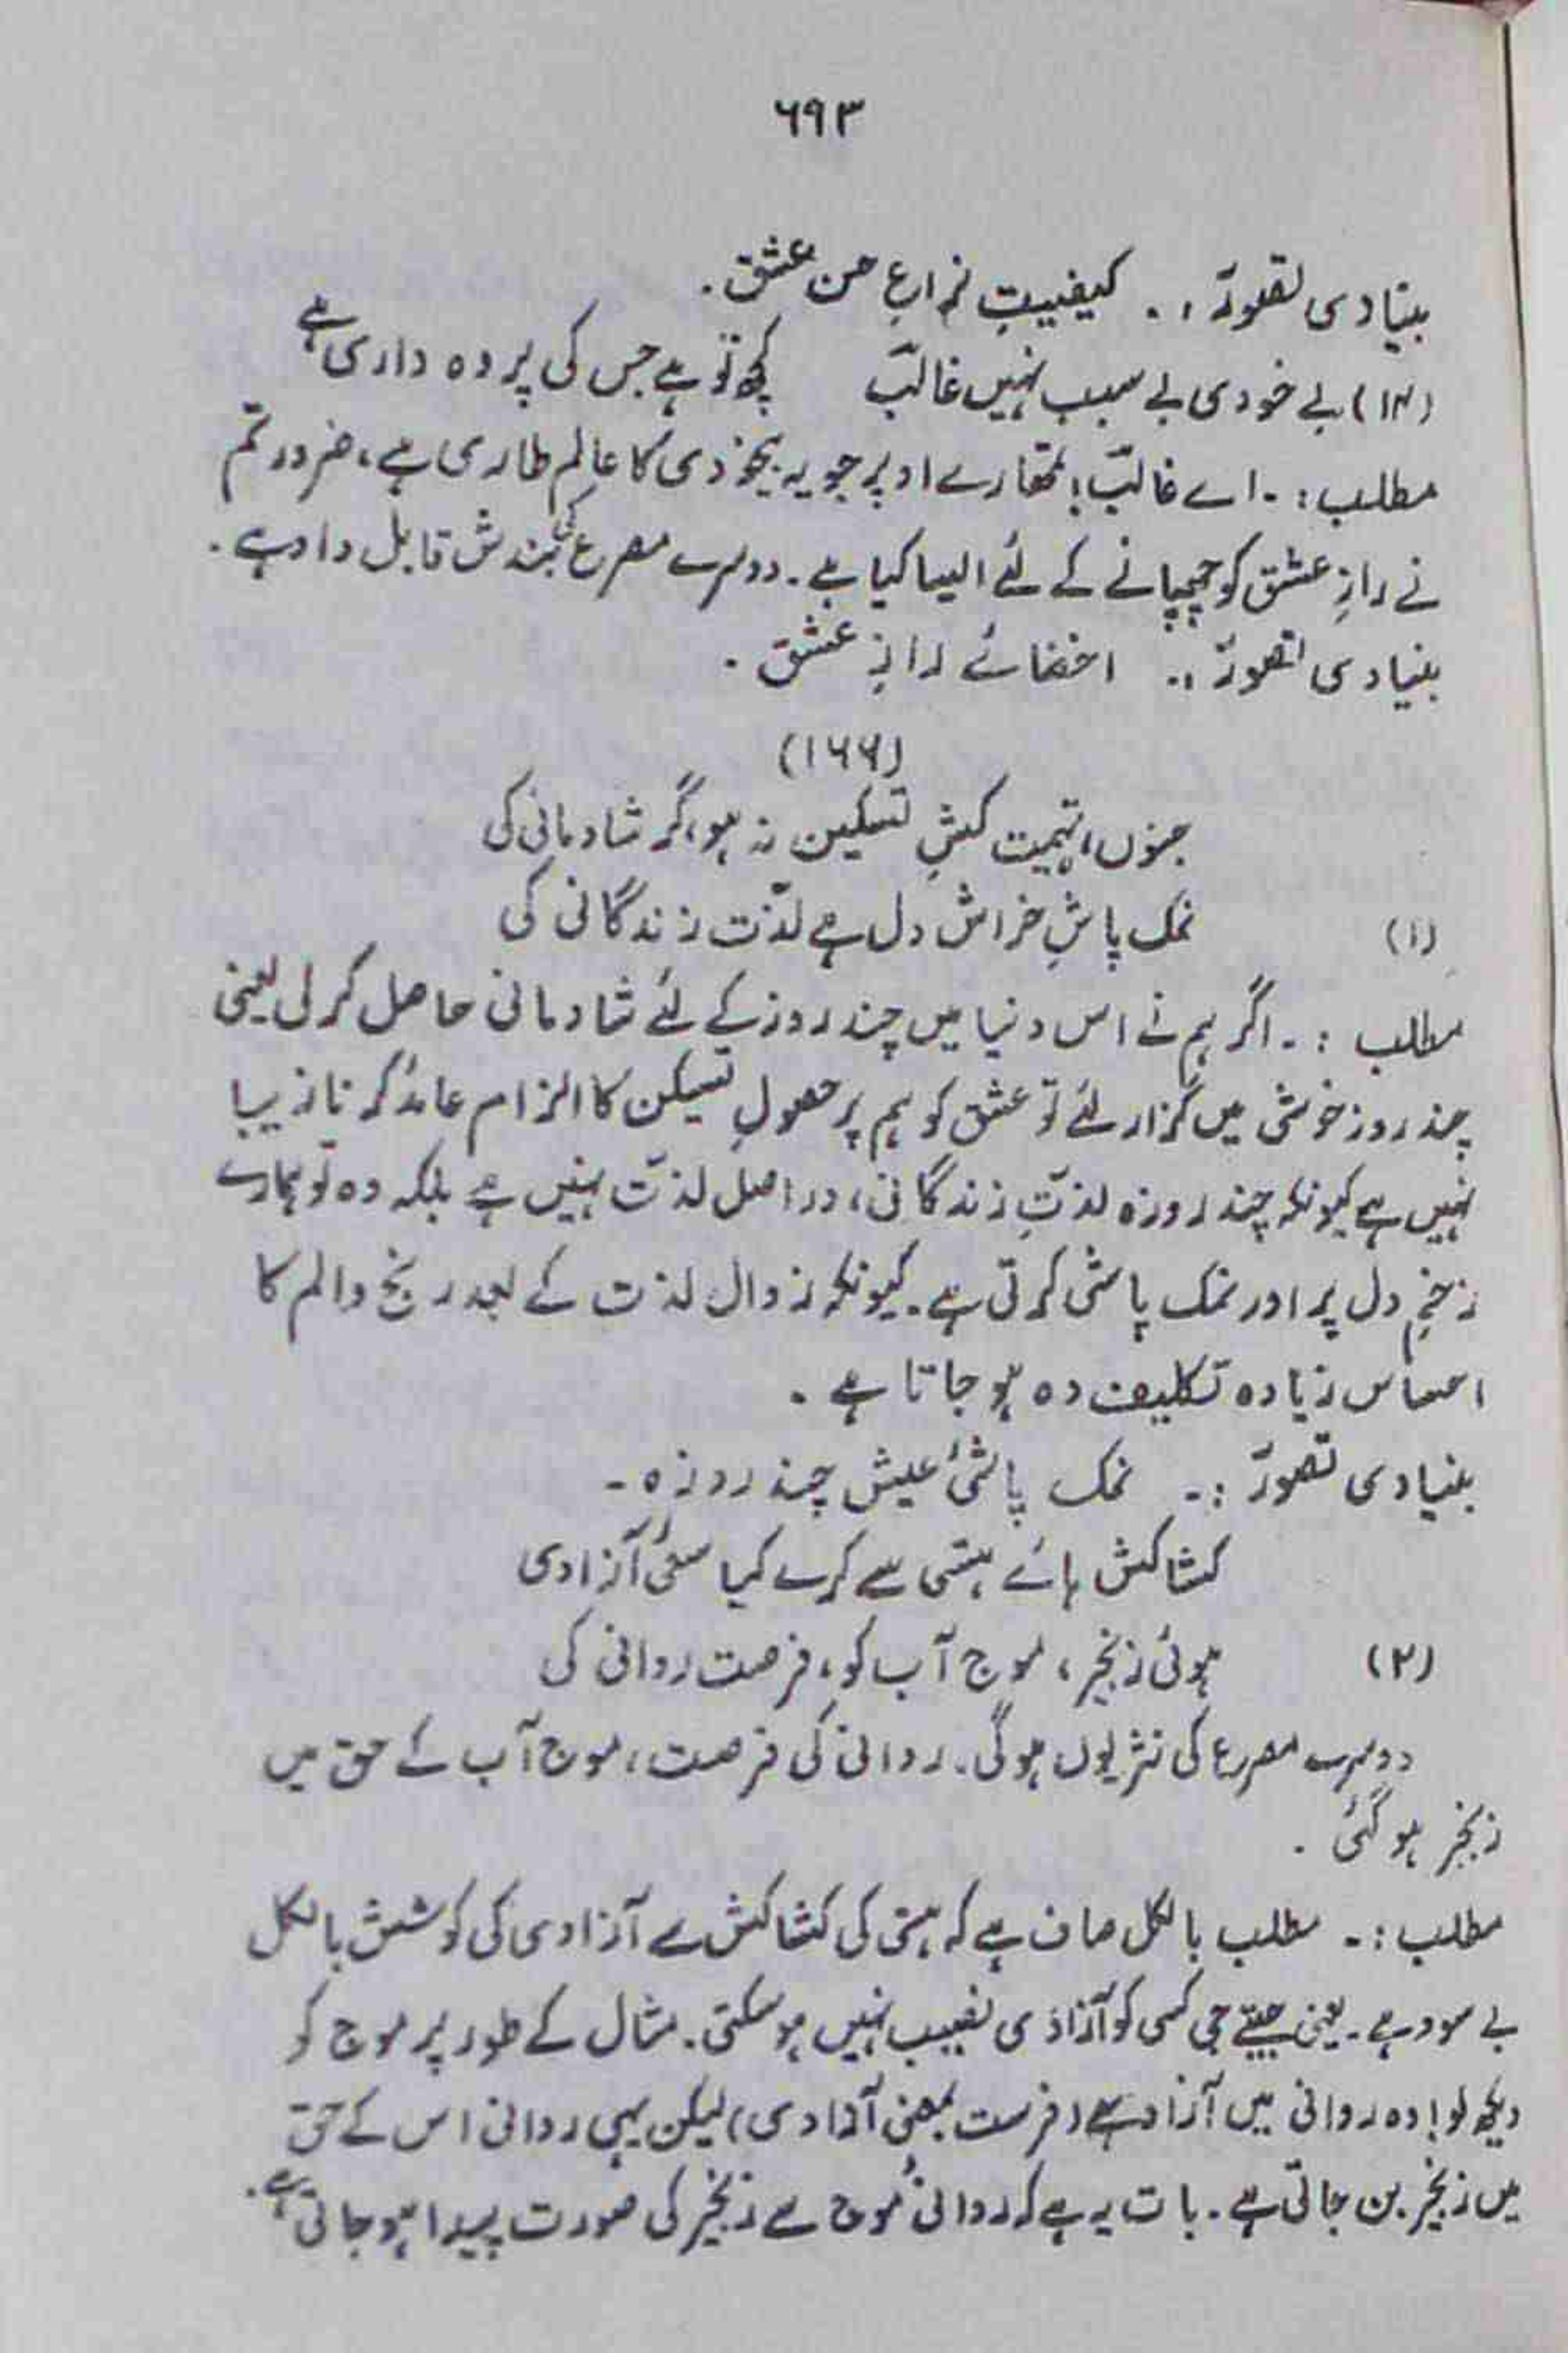 ۶۹۳
بنیادی تصورّ :۔ کیفیتِ نزاعِ حسن عشق .
(۱۴) بے خودی بے سبب نہیں غالبؔ کچھ تو ہے جس کی پردہ داری ہے
مطلب :۔ اے غالبؔ! تمھارے اوپر جو یہ بیخودی کا عالم طاری ہے، ضرور تم
نے رازِ عشق کو چھپانے کے لئے ایسا کیا ہے . دوسرے مصرع کی بندش قابل داد ہے .
بنیادی تصورّ :۔ اخفائے رازِ عشق .
(۱۶۶)
جنوں، تہمت کشِ تسکین نہ ہو، گر شادمانی کی
(۱) نمک پاشِ خراش دل ہے لذّت زندگانی کی
مطلب :۔ اگر ہم نے اس دنیا میں چند روز کے لئے شادمانی حاصل کر لی یعنی
چند روز خوشی میں گزار لئے تو عشق کو ہم پر حصولِ تسکین کا الزام عائد کرنا زیبا
نہیں ہے کیونکہ چند روزہ لذّتِ زندگانی، در اصل لذّت نہیں ہے بلکہ وہ تو ہمارے
زخمِ دل پر اور نمک پاشی کرتی ہے . کیونکہ زوال لذت کے بعد رنج و الم کا
احساس زیادہ تکلیف دہ ہو جاتا ہے .
بنیادی تصورّ :۔ نمک پاشئ عیش چند روزہ ۔
کشاکش ہائے ہستی سے کرے کیا سعئ آزادی
(۲) ہوئی زنجیر، موج آب کو، فرصت روانی کی
دوسرے مصرع کی نثر یوں ہوگی . روانی کی فرصت، موج آب کے حق میں
زنجیر ہو گئی .
مطلب :۔ مطلب بالکل صاف ہے کہ ہستی کی کشاکش سے آزادی کی کوشش بالکل
بے سود ہے . یعنی جیتے جی کسی کو آزادی نصیب نہیں ہو سکتی . مثال کے طور پر موج کو
دیکھ لو! وہ روانی میں آزاد ہے (فرست بمعنی آزادی) لیکن یہی روانی اس کے حق
میں زنجیر بن جاتی ہے . بات یہ ہے کہ روانئ موج سے زنجیر کی صورت پیدا ہو جاتی ہے .